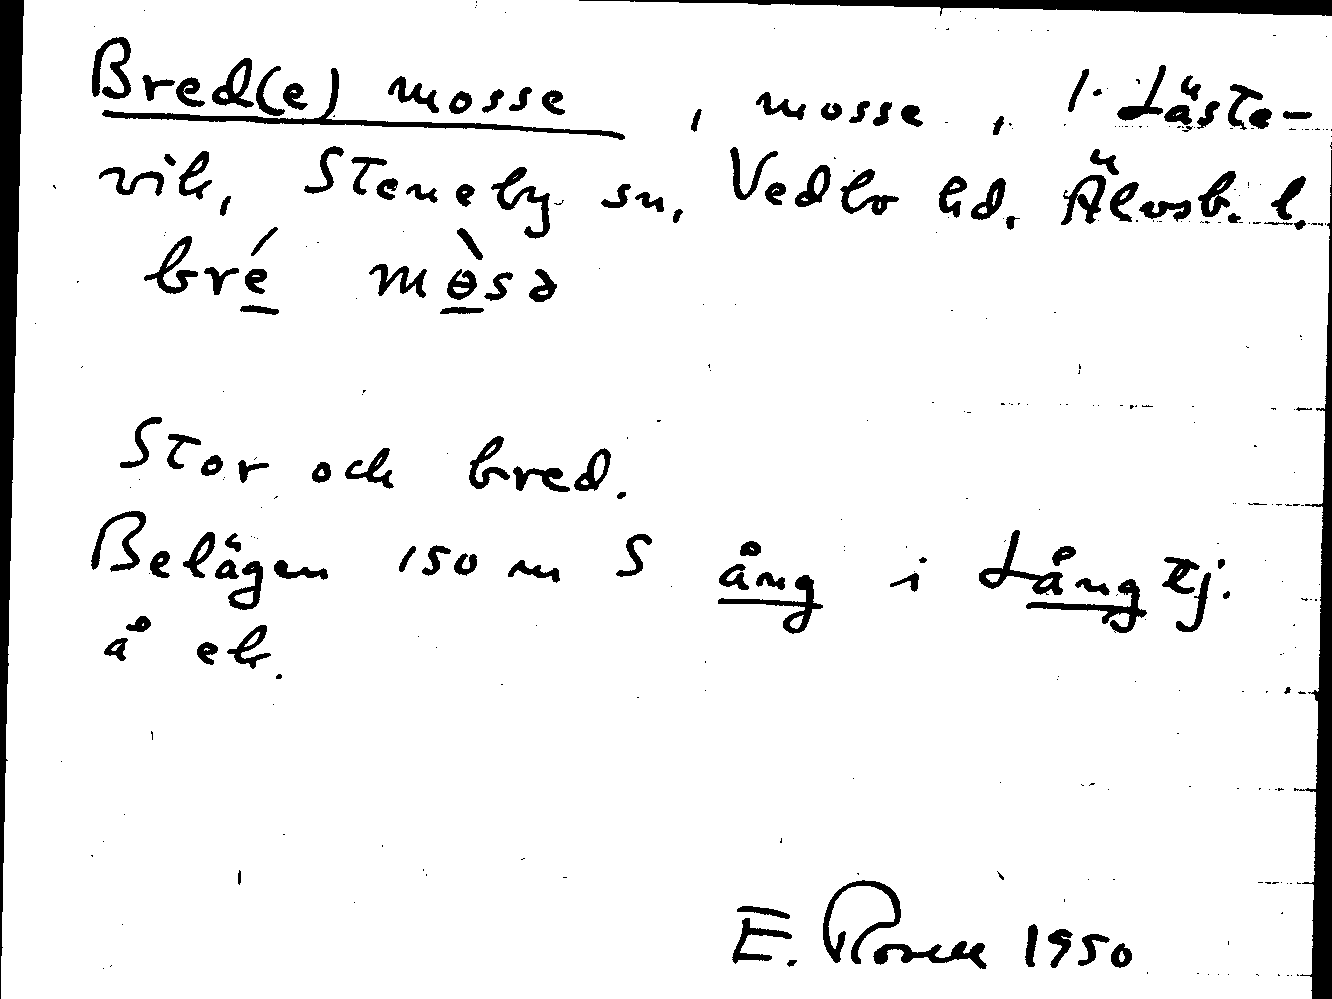 Bred(e) mosse, mosse, 1. Läste-
vik, Steneby sn, Vedbo hd. Älvsb. l.
bré mɵ̀sə
Stor och bred.
Belägen 150 m S ång i Lång tj.
å ek.
E. Rosell 1950